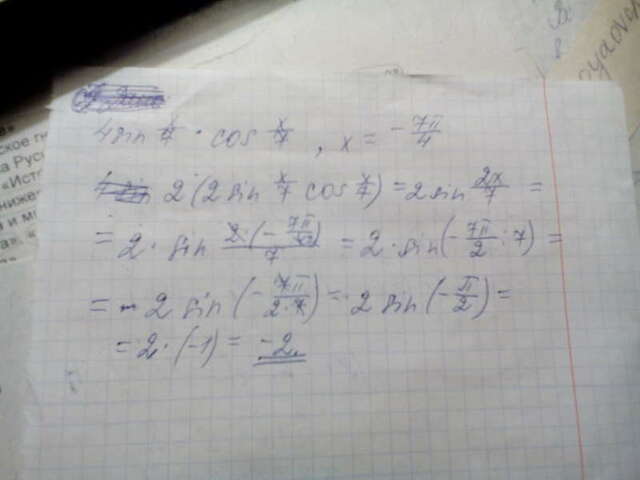 4 sin x/7 · cos x/7 , x = -7π/4
2 (2 sin x/7 cos x/7) = 2 sin 2x/7 =
= 2 · sin 2·(-7π/4)/7 = 2 · sin(-7π/2 : 7) =
= 2 sin (-7π/2·7) = 2 sin (-π/2) =
= 2 · (-1) = -2
ское
а Рус
«Исто
ниже
а и м